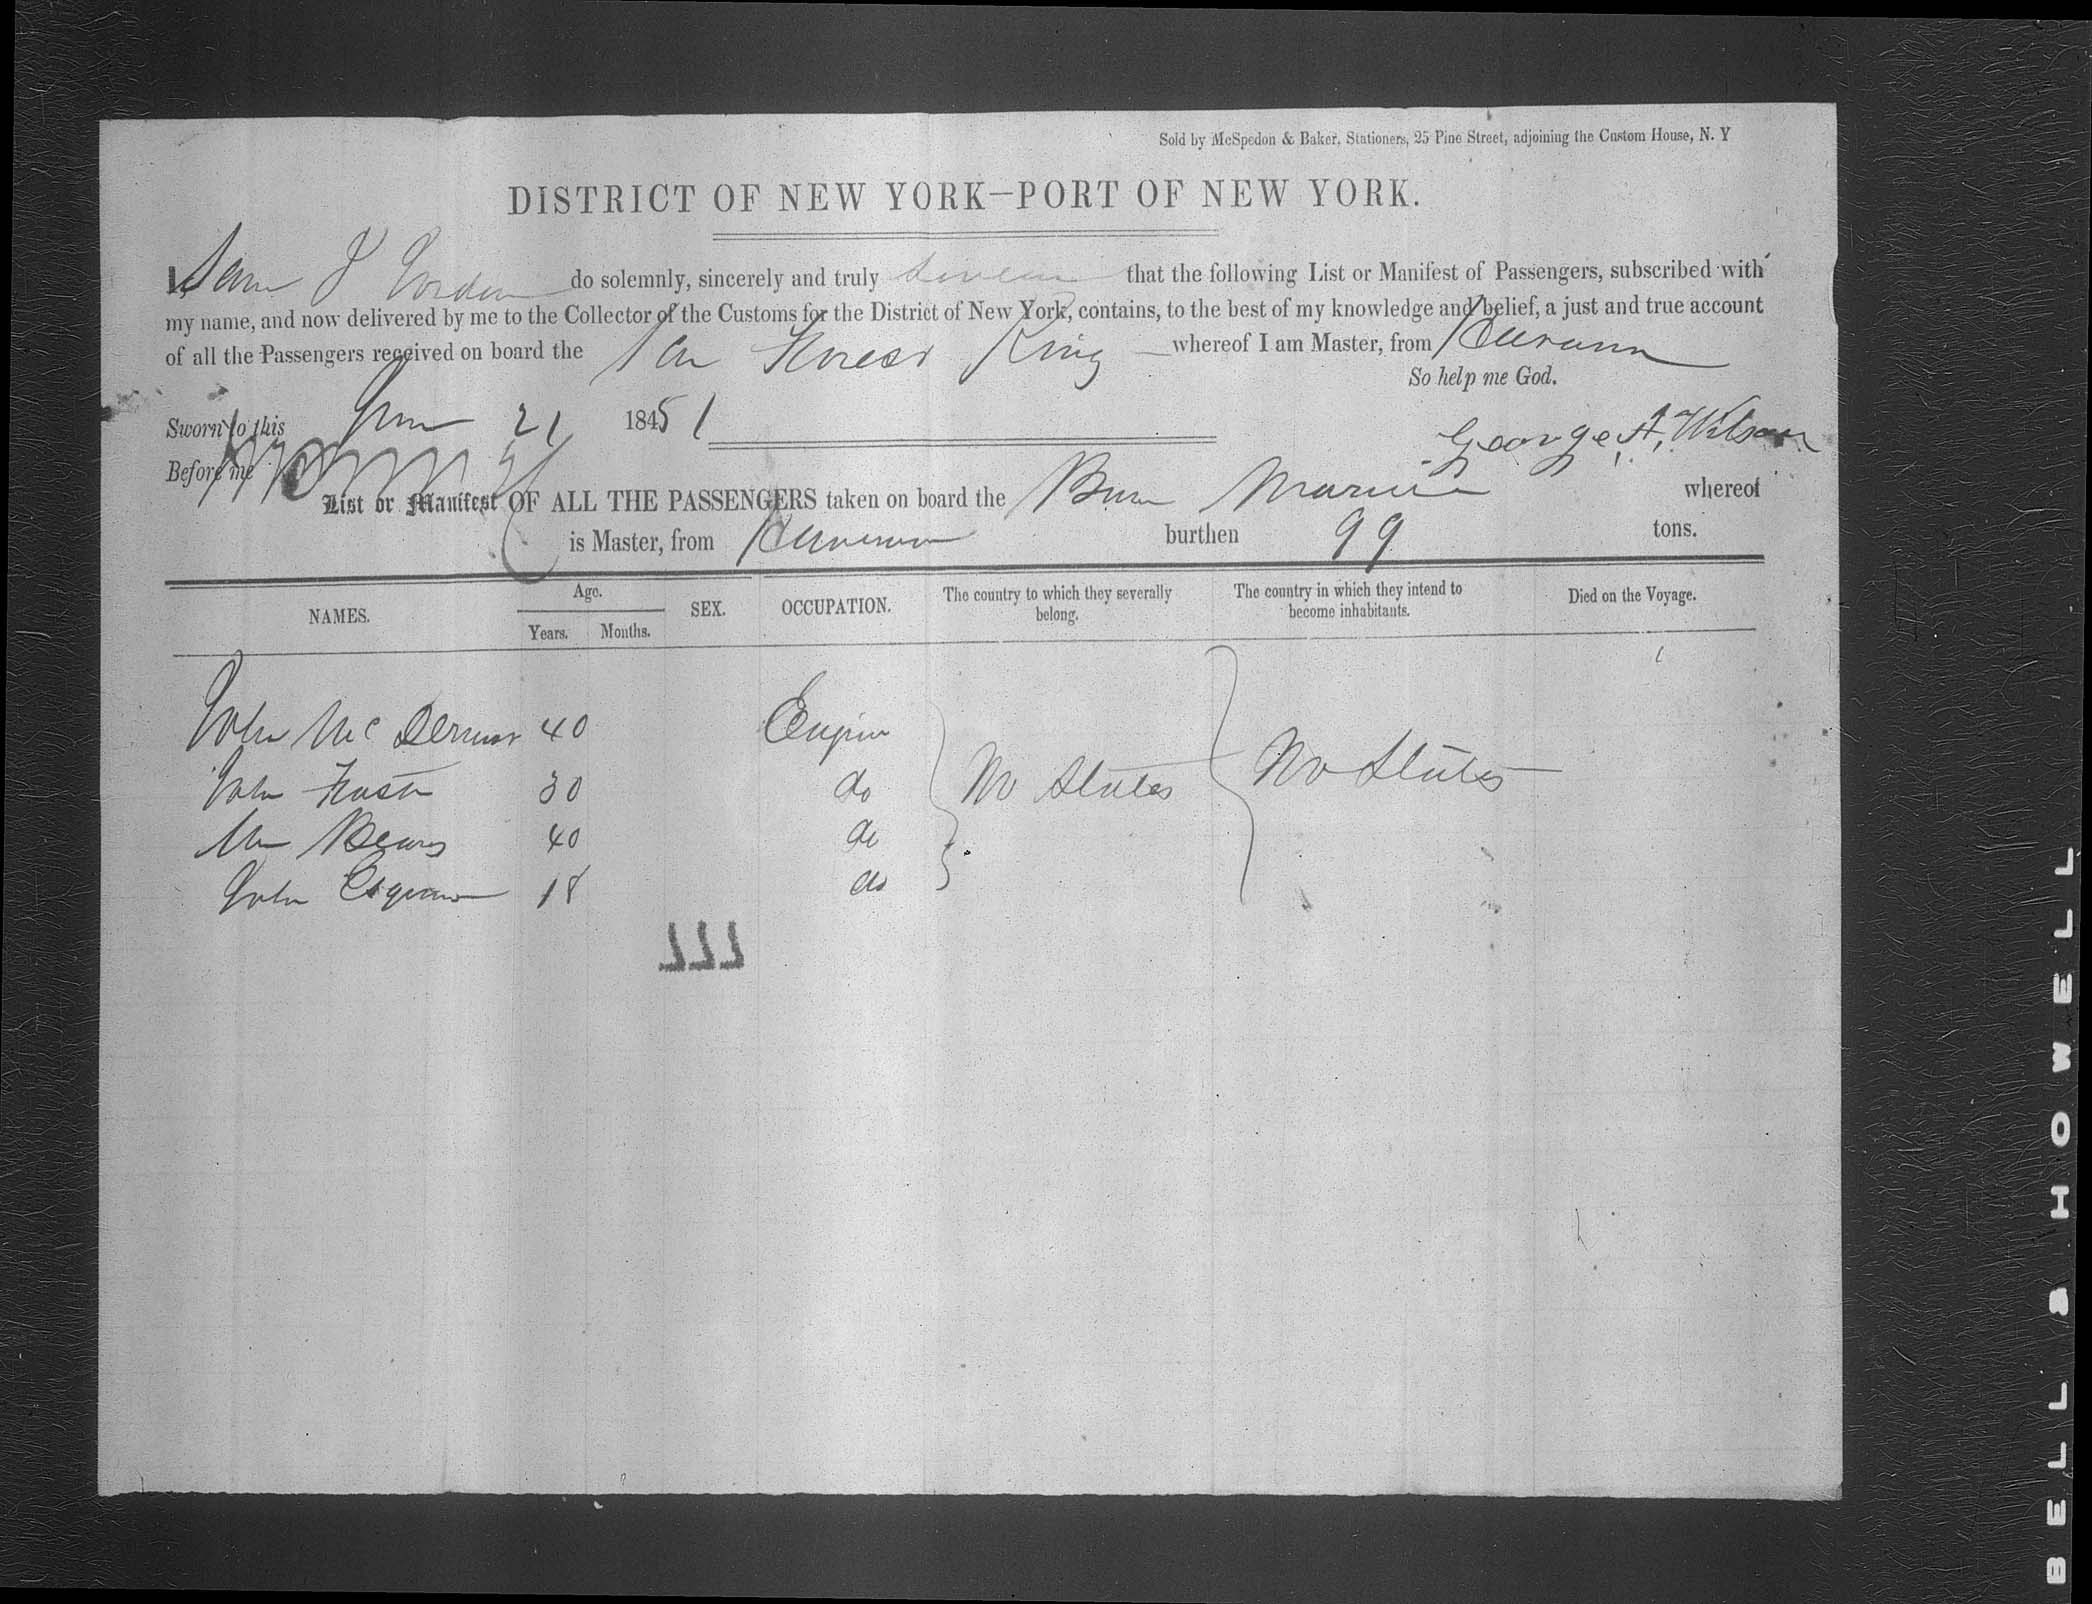 Sold by McSpedon & Baker, Stationers, 25 Pine Street, adjoining the Custom House, N. Y
DISTRICT OF NEW YORK—PORT OF NEW YORK.
do solemnly, sincerely and truly that the following List or Manifest of Passengers, subscribed with
my name, and now delivered by me to the Collector of the Customs for the District of New York, contains, to the best of my knowledge and belief, a just and true account
of all the Passengers received on board the King whereof I am Master, from
So help me God.
Sworn to this 21 18451
George A. Wilson
Before me
List or Manifest OF ALL THE PASSENGERS taken on board the whereof
is Master, from burthen 99 tons.
NAMES. Age. Years. Months. SEX. OCCUPATION. The country to which they severally belong. The country in which they intend to become inhabitants. Died on the Voyage.
John Mc 40
John 30 do States States
40 do
John 18 do
111
BELL & HOWELL